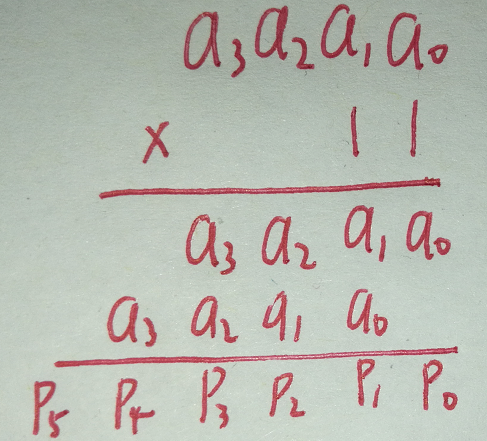 a₃ a₂ a₁ a₀
× 1 1
a₃ a₂ a₁ a₀
a₃ a₂ a₁ a₀
P₅ P₄ P₃ P₂ P₁ P₀